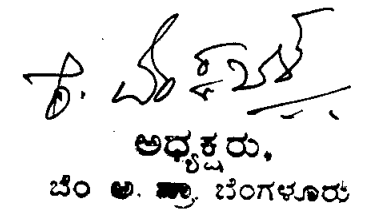 ಅಧ್ಯಕ್ಷರು,
ಬೆಂ ಅ. ಪ್ರಾ. ಬೆಂಗಳೂರು